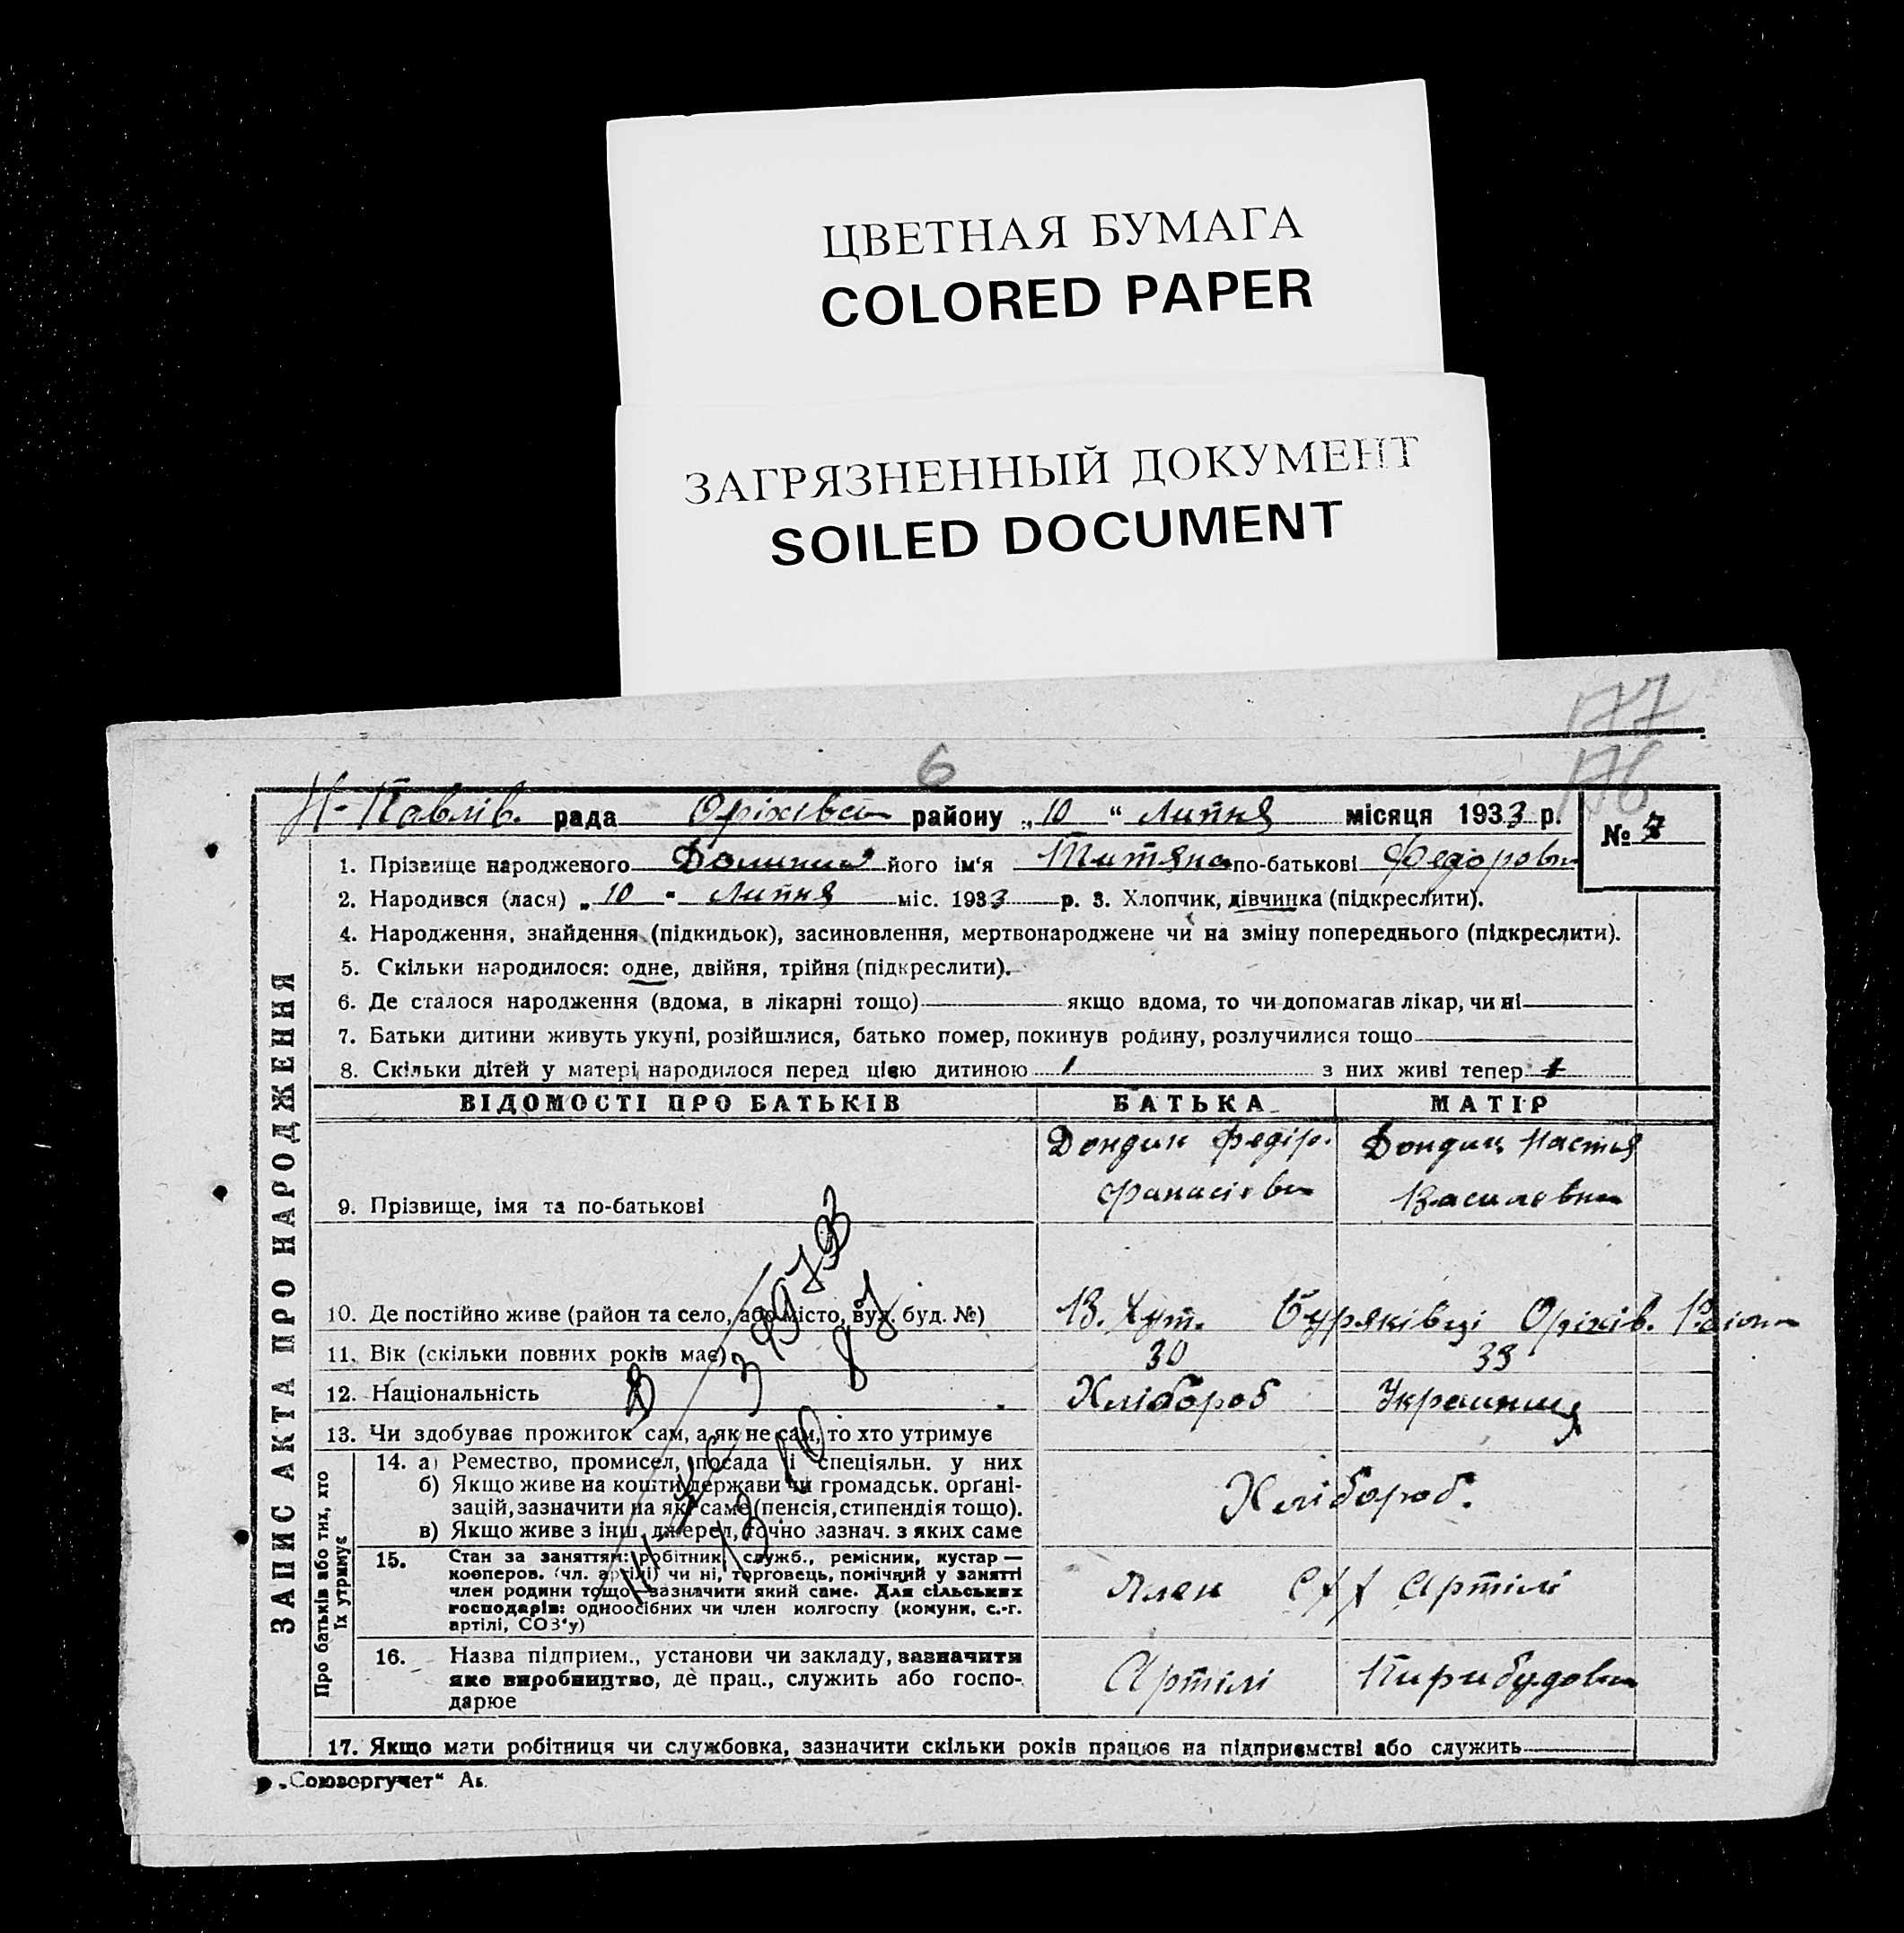 ЦВЕТНАЯ БУМАГА
COLORED PAPER
ЗАГРЯЗНЕННЫЙ ДОКУМЕНТ
SOILED DOCUMENT
177
6
176
Н-Павлів. рада Оріхівсь району „10 “ Липня місяця 1933 р.
№ 7
ЗАПИС АКТА ПРО НАРОДЖЕННЯ
1. Прізвище народженого його ім'я Титяна по-батькові Федоровн
2. Народився (лася) „10 " Липня міс. 1933 р. 3. Хлопчик, дівчинка (підкреслити).
4. Народження, знайдення (підкидьок), засиновлення, мертвонароджене чи на зміну попереднього (підкреслити).
5. Скільки народилося: одне, двійня, трійня (підкреслити).
6. Де сталося народження (вдома, в лікарні тощо) якщо вдома, то чи допомагав лікар, чи ні
7. Батьки дитини живуть укупі, розійшлися, батько помер, покинув родину, розлучилися тощо
8. Скільки дітей у матері народилося перед цією дитиною 1 з них живі тепер 1
ВІДОМОСТІ ПРО БАТЬКІВ БАТЬКА МАТІР
Дондик Федір. Дондик Настя
9. Прізвище, імя та по-батькові Фанасієви Василевна
10. Де постійно живе (район та село, або місто, вул. буд. №) В. Хут. Буряківці Оріхів. Раіони
11. Вік (скільки повних років має) 30 33
12. Національність Хлібороб Украиница
13. Чи здобуває прожиток сам, а як не сам, то хто утримує
Про батьків або тих, хто їх утримує
14. а) Ремество, промисел, посада і спеціяльн. у них
б) Якщо живе на кошти держави чи громадськ. органі-
зацій, зазначити на які саме (пенсія, стипендія тощо).
в) Якщо живе з інш. джерел, точно зазнач. з яких саме
Хлібороб.
15. Стан за заняттям: робітник, служб., ремісник, кустар —
кооперов. (чл. артілі) чи ні, торговець, помічний у занятті
член родини тощо зазначити який саме. Для сільських
господарів: одноосібних чи член колгоспу (комуни, с.-г.
артілі, СОЗ'у)
Член Артілі
16. Назва підприєм., установи чи закладу, зазначити
яке виробництво, де прац., служить або госпо-
дарюе
Артілі
17. Якщо мати робітниця чи службовка, зазначити скільки років працює на підприємстві або служить
„Союзоргучет“